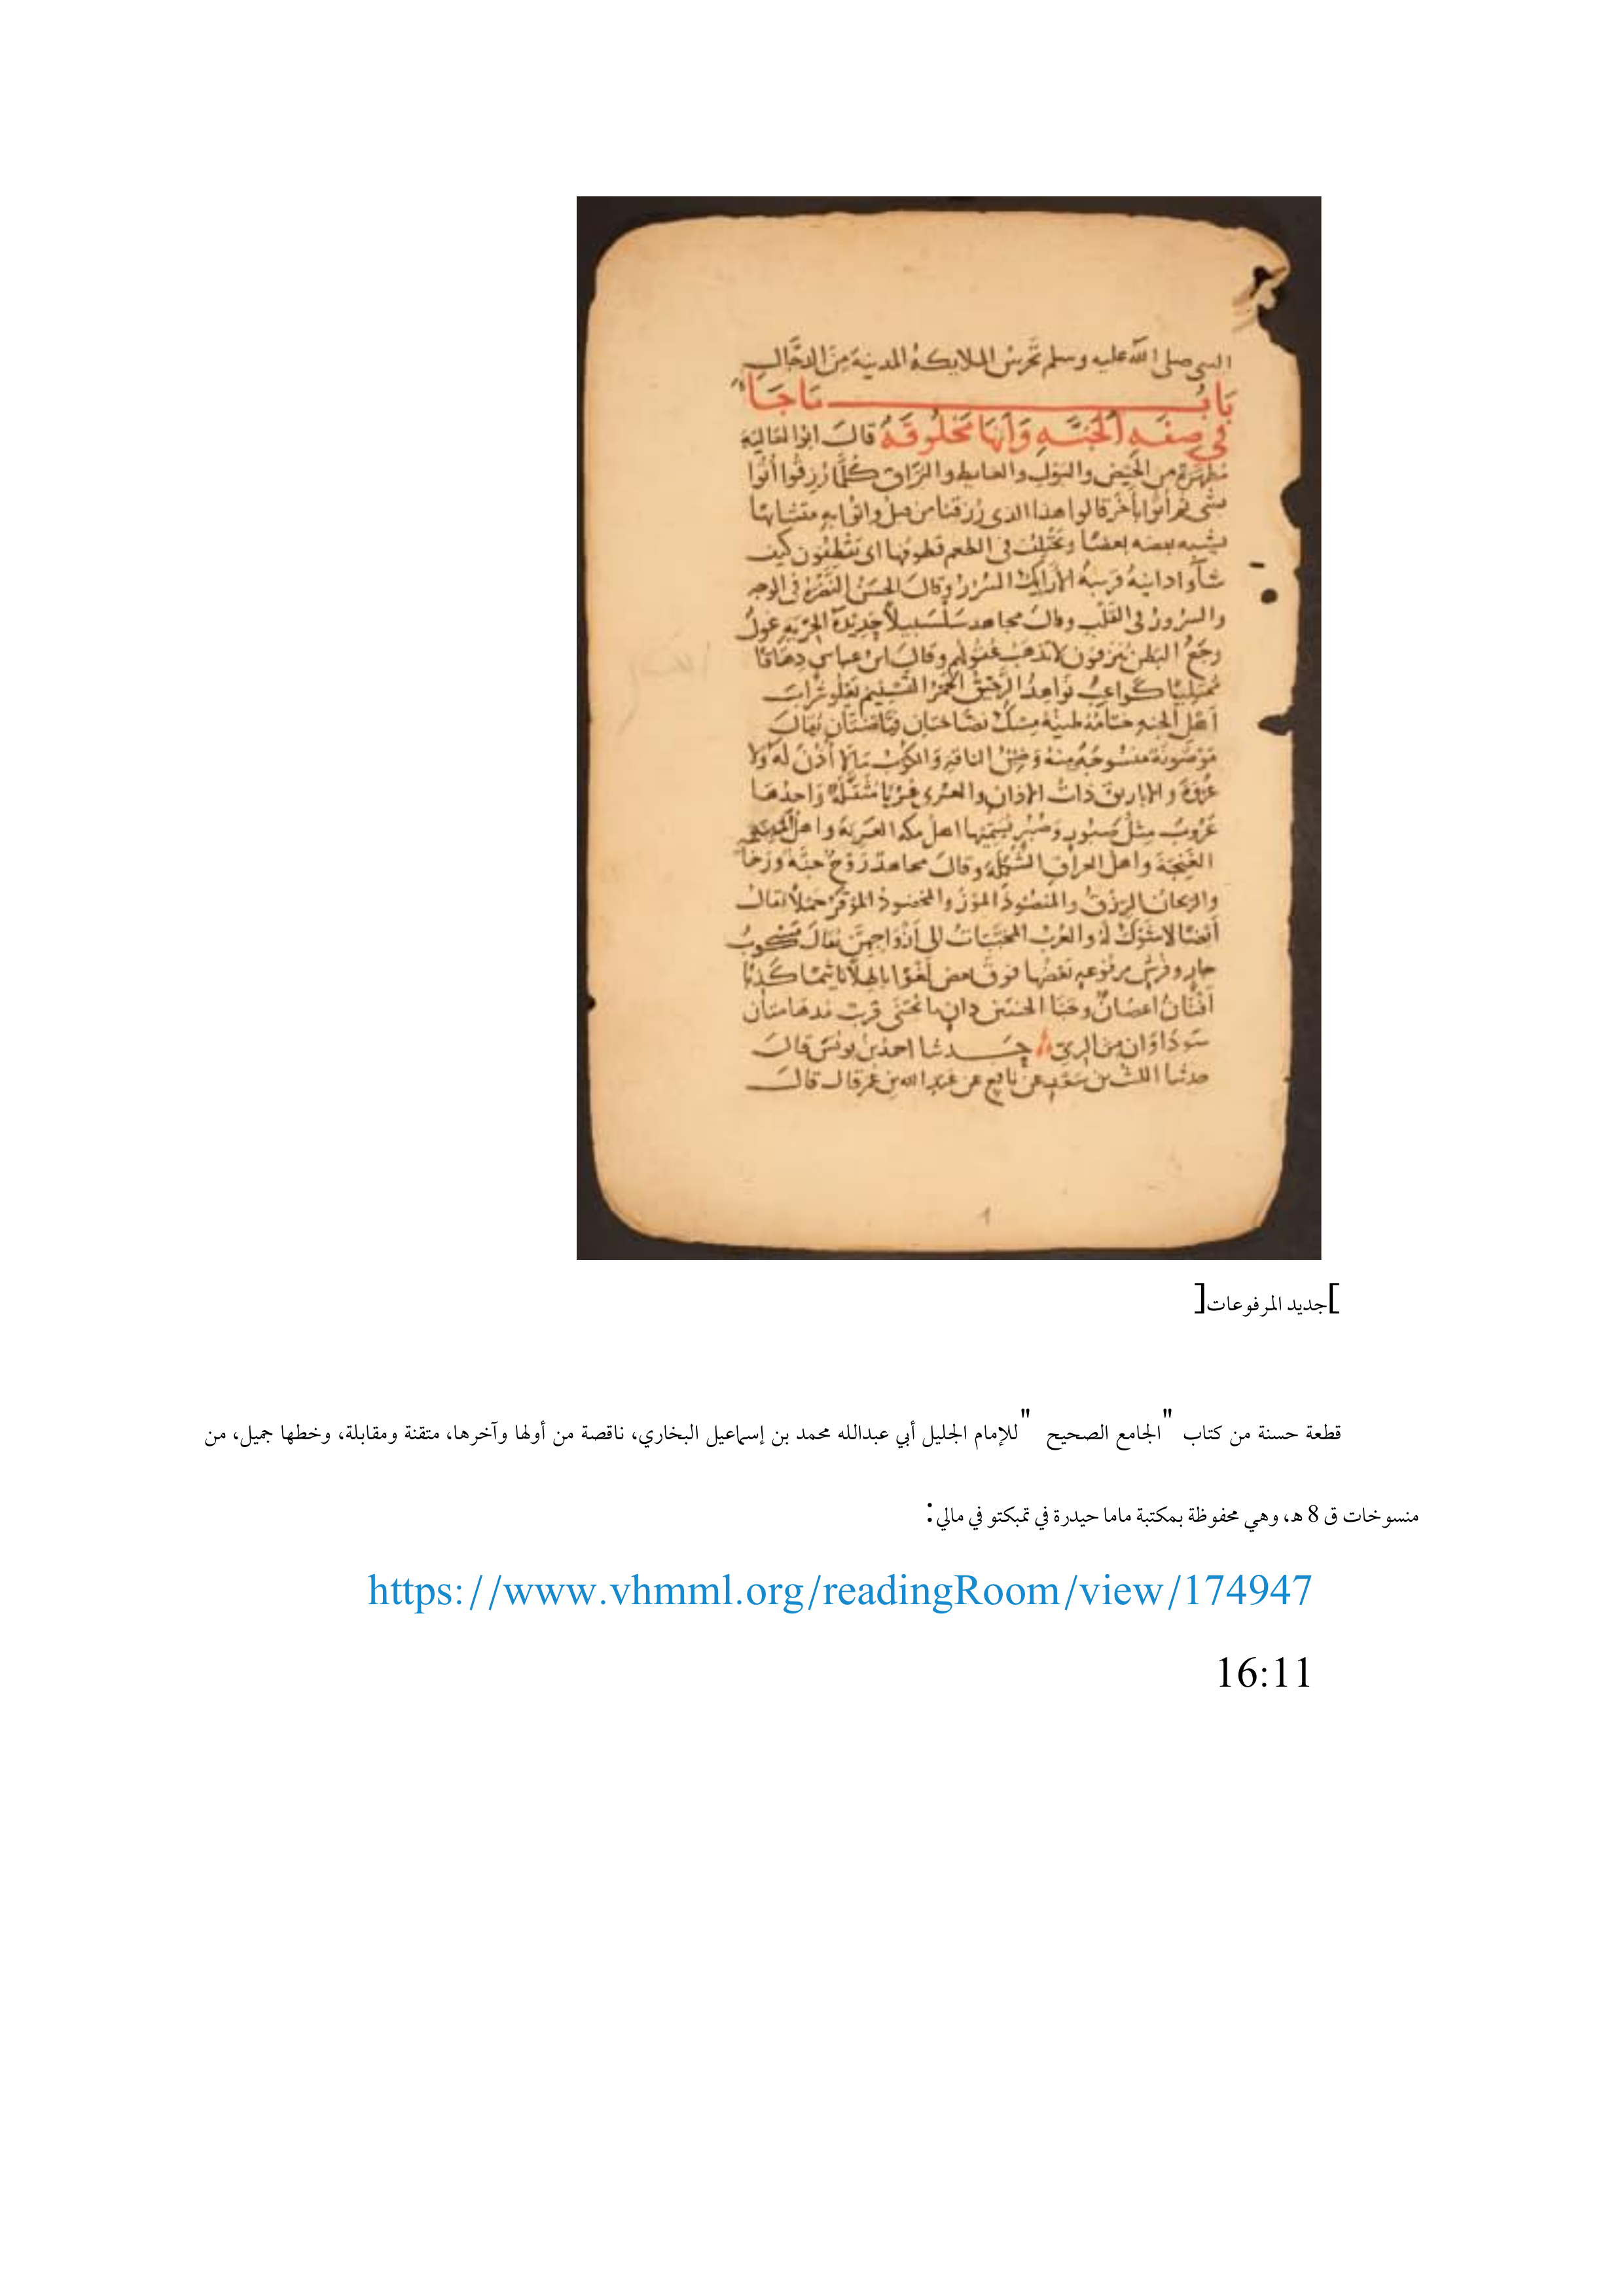 النبي صلى الله عليه وسلم تَحرسُ الملايكة المدينة مِنَ الدجَّالِ
بَابُ مَا جَاءَ
فِي صِفَةِ الْجَنَّةِ وَأَنَّهَا مَخْلُوقَةٌ قالَ ابوا العَاليَة
مُطَهَّرَةٌ من الحَيْض والبَوْلِ والغايط والبُزَاق كُلَّمَا رُزِقُوا أُتُوا
بشى ثم أُتوا بآخَر قالوا هذا الذى رُزقنا من قبلُ واتُوا به متشابهًا
يشبه بعضه بعضًا ويَختَلِف فى الطعم قطوفها اى يقطِفُون كيف
شآوا دانيةُ قريبةُ الأرَايِكُ السُرُر وقال الحسَن النَضْرَةُ فى الوجه
والسرورُ فى القَلْب وقال مجاهد سَلْسَبيلاً حَدِيدَة الجِرْيَهِ غَوْلُ
وجَعُ البَطن يُنزفون لا تذهَبُ عُقُولهم وقالَ ابن عباس دِهَاقًا
مُمتليًا كَواعِبُ نَواهدُ الرَّحِيْقُ الخَمْر التَسْنِيم يَعْلُو شَرابَ
أَهْلِ الجنه ختامُهُ طينُهُ مِسْكٌ نضَّاختان فيَّاضتان يُقالَ
مَوْضُونَة مَنْسُوجَة مِنهُ وَضِيْنُ الناقه وَالكُوْبُ مَا لا أُذْنَ لَه ولا
عُرْوَةَ والاباريق ذات الاذان والعُرى عُرُبًا مُثَقَّلَةً وَاحِدُهَا
عَرُوبٌ مِثْلُ صَبُورٍ وَصُبُرٍ يُسَمِّيْها اهلُ مكه العَرِبَةَ واهلُ المدينة
الغَنِجَةَ واهلُ العراقِ الشَّكِلَةَ وقالَ مجاهد رَوْحٌ جنَّةٌ ورَخَآ
والريحان الرِزْقُ والمَنضُودُ المَوْزُ والمخضودُ المُوْقَرُ حَمْلاً يقال
أيْضًا لا شَوْكَ لهُ والعُرُبُ المُحَبَّبَاتُ الى أَزْوَاجِهِنَّ يُقالَ مَسْكُوبٌ
جارٍ وفرشٍ مرفوعهٍ بَعْضُها فوقَ بعض لَغْوًا باطِلاً تاثيمًا كَذِبًا
أَفْنَانُ اغصَانٌ وجَنَا الجنتين دانٍ ما يُجْتَنَى قريب مُدهَامتان
سَودَاوَان من الرِىّ حَدثنا احمدُ بن يونسَ قالَ
حدثنا الليْث بن سَعْدٍ عن نافعٍ عن عَبدِ الله بن عُمَر قال قالَ
1
[جديد المرفوعات]
قطعة حسنة من كتاب "الجامع الصحيح" للإمام الجليل أبي عبدالله محمد بن إسماعيل البخاري، ناقصة من أولها وآخرها، متقنة ومقابلة، وخطها جميل، من
منسوخات ق 8 هـ، وهي محفوظة بمكتبة ماما حيدرة في تمبكتو في مالي:
https://www.vhmml.org/readingRoom/view/174947
16:11